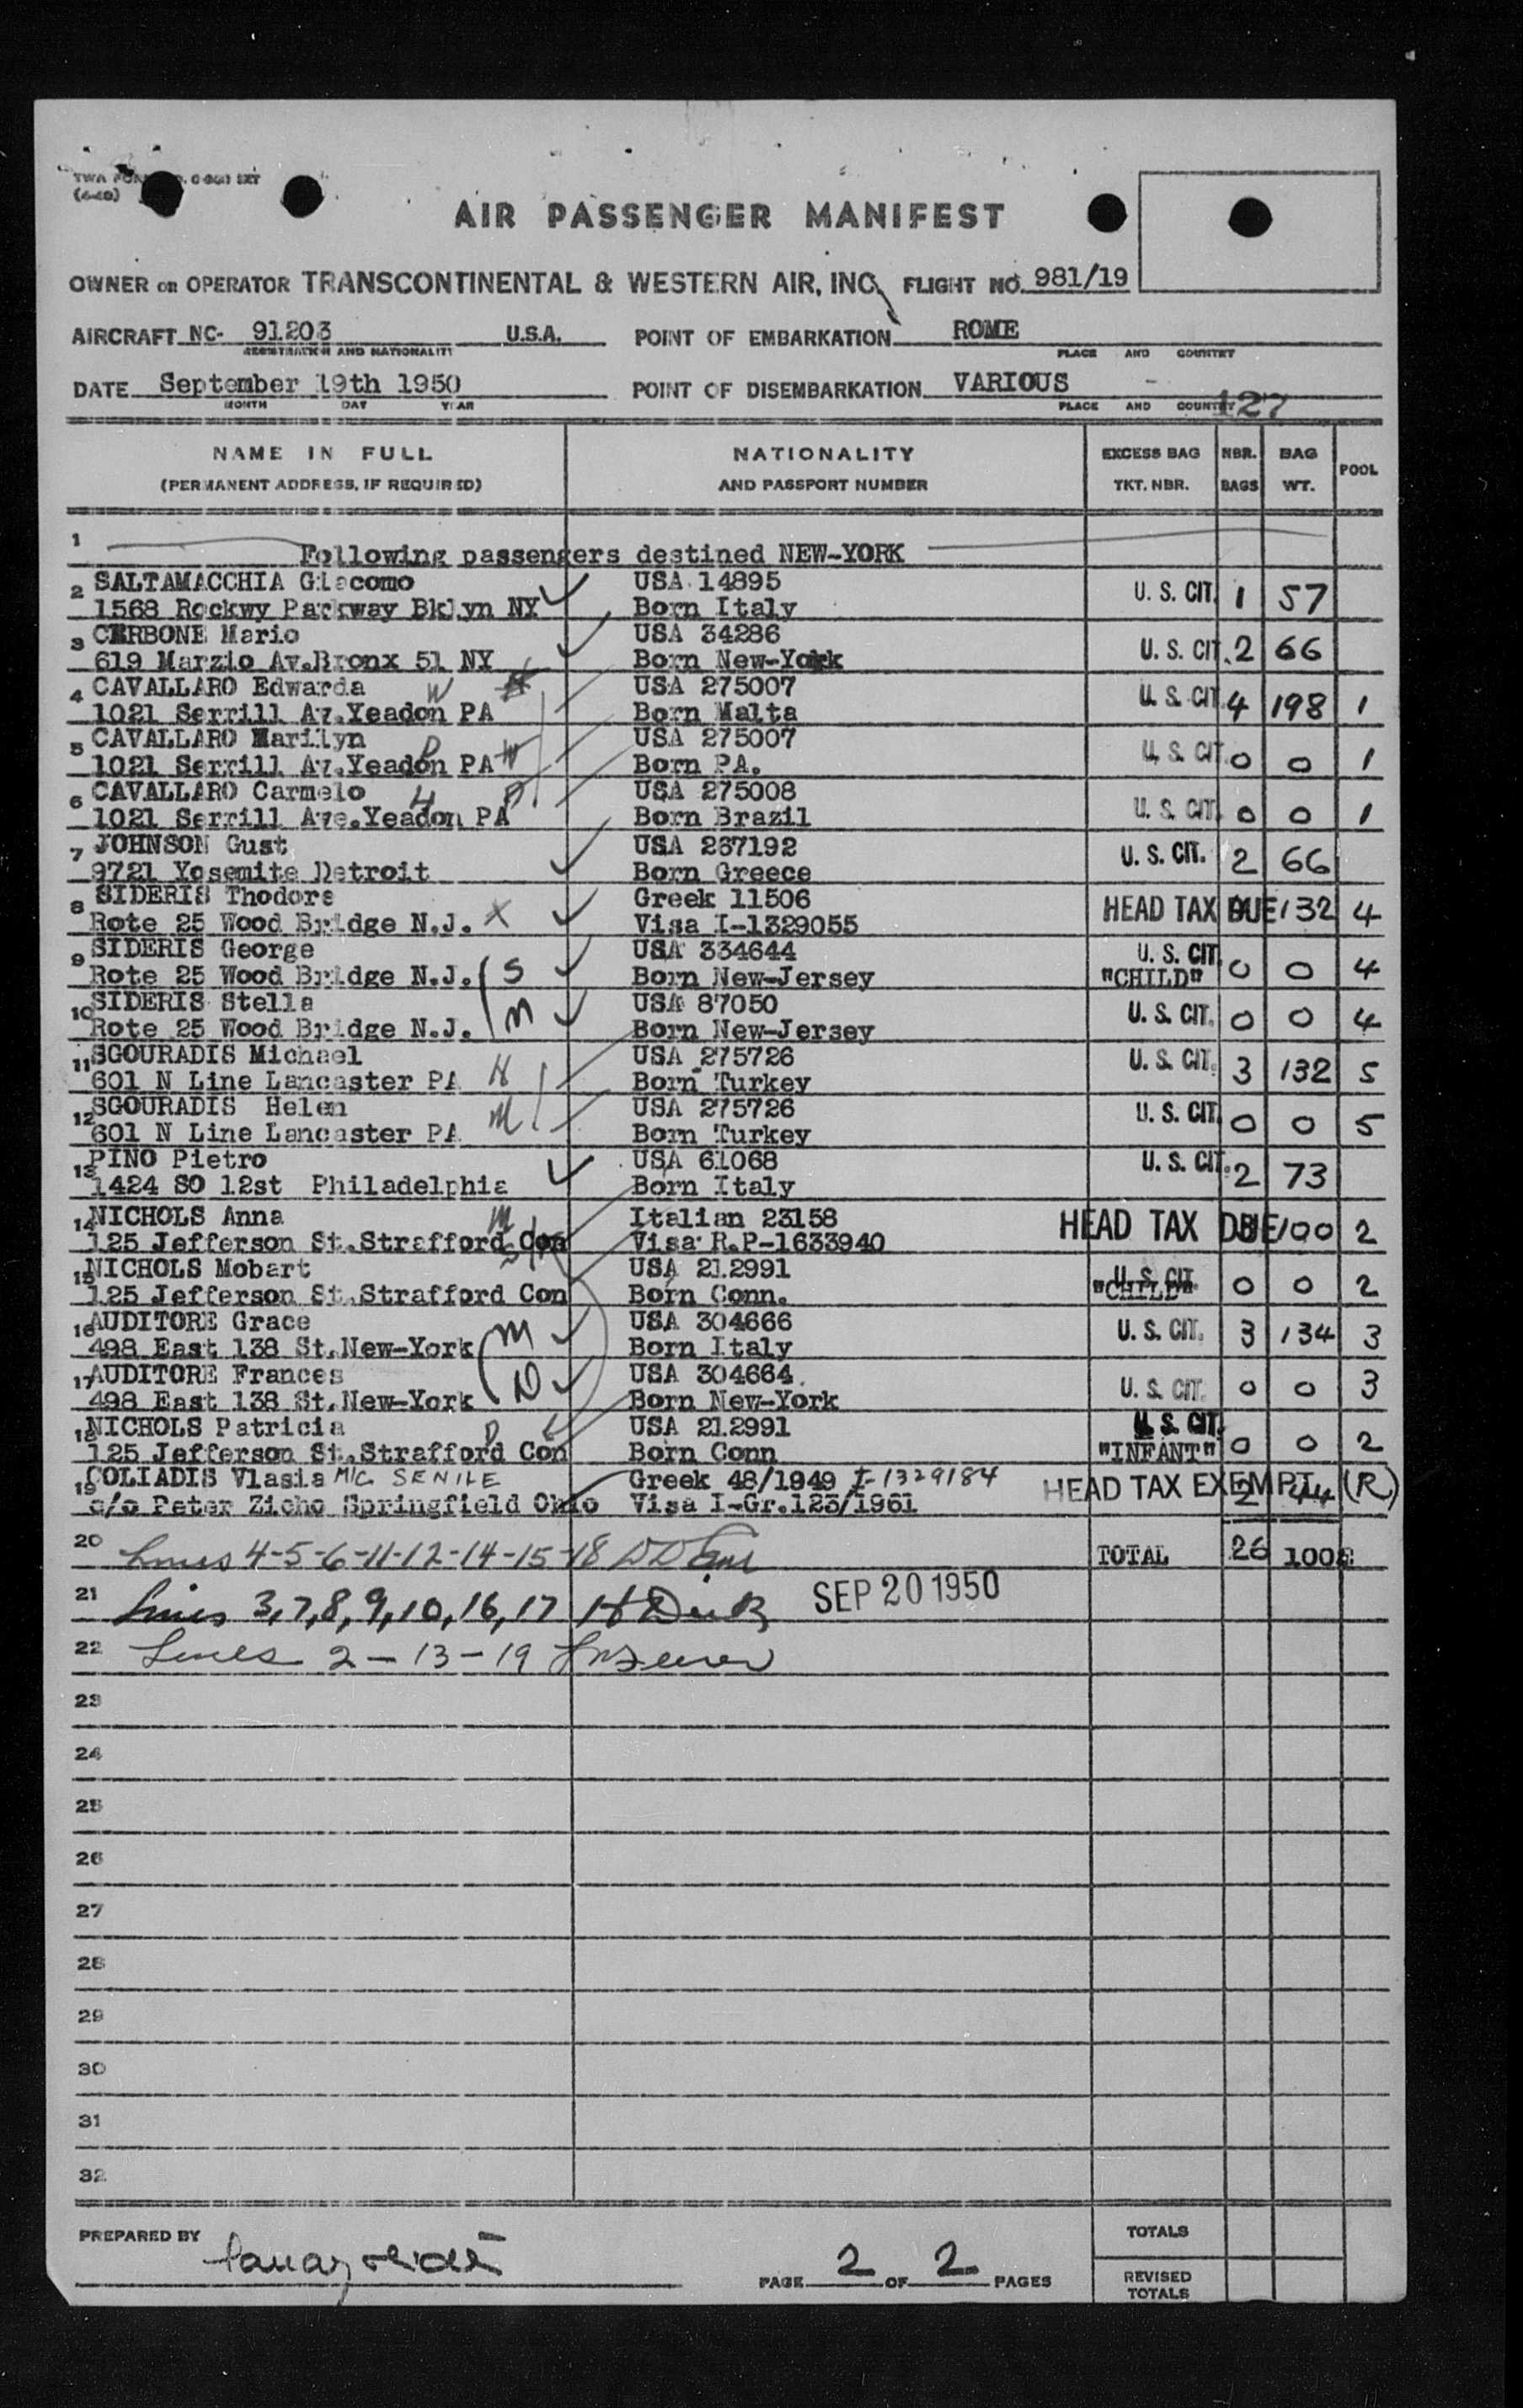 TWA FORM
AIR PASSENGER MANIFEST
OWNER OR OPERATOR TRANSCONTINENTAL & WESTERN AIR, INC. FLIGHT NO. 981/19
AIRCRAFT NC- 91203 U.S.A. POINT OF EMBARKATION ROME
REGISTRATION AND NATIONALITY PLACE AND COUNTRY
DATE September 19th 1950 POINT OF DISEMBARKATION VARIOUS -
MONTH DAY YEAR PLACE AND COUNTRY 127
NAME IN FULL NATIONALITY EXCESS BAG NBR. BAG POOL
(PERMANENT ADDRESS, IF REQUIRED) AND PASSPORT NUMBER TKT. NBR. BAGS WT.
1 Following passengers destined NEW-YORK
2 SALTAMACCHIA Giacomo USA 14895 U. S. CIT. 1 57
1568 Rockwy Parkway Bklyn NY Born Italy
3 CERBONE Mario USA 34286 U. S. CIT. 2 66
619 Marzio Av.Bronx 51 NY Born New-York
4 CAVALLARO Edwarda W USA 275007 U. S. CIT 4 198 1
1021 Serrill Av.Yeadon PA Born Malta
5 CAVALLARO Marilyn D USA 275007 U. S. CIT. 0 0 1
1021 Serrill Av.Yeadon PA Born PA.
6 CAVALLARO Carmelo H USA 275008 U. S. CIT. 0 0 1
1021 Serrill Ave.Yeadon PA Born Brazil
7 JOHNSON Gust USA 267192 U. S. CIT. 2 66
9721 Yosemite Detroit Born Greece
8 SIDERIS Thodore Greek 11506 HEAD TAX DUE 132 4
Rote 25 Wood Bridge N.J. X Visa I-1329055
9 SIDERIS George USA 334644 U. S. CIT. 0 0 4
Rote 25 Wood Bridge N.J. S Born New-Jersey "CHILD"
10 SIDERIS Stella USA 87050 U. S. CIT. 0 0 4
Rote 25 Wood Bridge N.J. M Born New-Jersey
11 SGOURADIS Michael USA 275726 U. S. CIT. 3 132 5
601 N Line Lancaster PA H Born Turkey
12 SGOURADIS Helen USA 275726 U. S. CIT. 0 0 5
601 N Line Lancaster PA M Born Turkey
13 PINO Pietro USA 61068 U. S. CIT. 2 73
1424 SO 12st Philadelphia Born Italy
14 NICHOLS Anna M Italian 23158 HEAD TAX DUE 100 2
125 Jefferson St.Strafford Con Visa R.P-1633940
15 NICHOLS Mobart USA 212991 U. S. CIT. 0 0 2
125 Jefferson St.Strafford Con Born Conn. "CHILD"
16 AUDITORE Grace USA 304666 U. S. CIT. 3 134 3
498 East 138 St.New-York M Born Italy
17 AUDITORE Frances USA 304664 U. S. CIT. 0 0 3
498 East 138 St.New-York D Born New-York
18 NICHOLS Patricia USA 212991 U. S. CIT. 0 0 2
125 Jefferson St.Strafford Con D Born Conn "INFANT"
19 COLIADIS Vlasia M/C SENILE Greek 48/1949 I-1329184 HEAD TAX EXEMPT 2 44 (R)
c/o Peter Zicho Springfield Ohio Visa I-Gr.123/1961
20 Lines 4-5-6-11-12-14-15-18 TOTAL 26 1002
21 Lines 3,7,8,9,10,16,17 SEP 20 1950
22 Lines 2-13-19
23
24
25
26
27
28
29
30
31
32
PREPARED BY TOTALS
PAGE 2 OF 2 PAGES REVISED
TOTALS